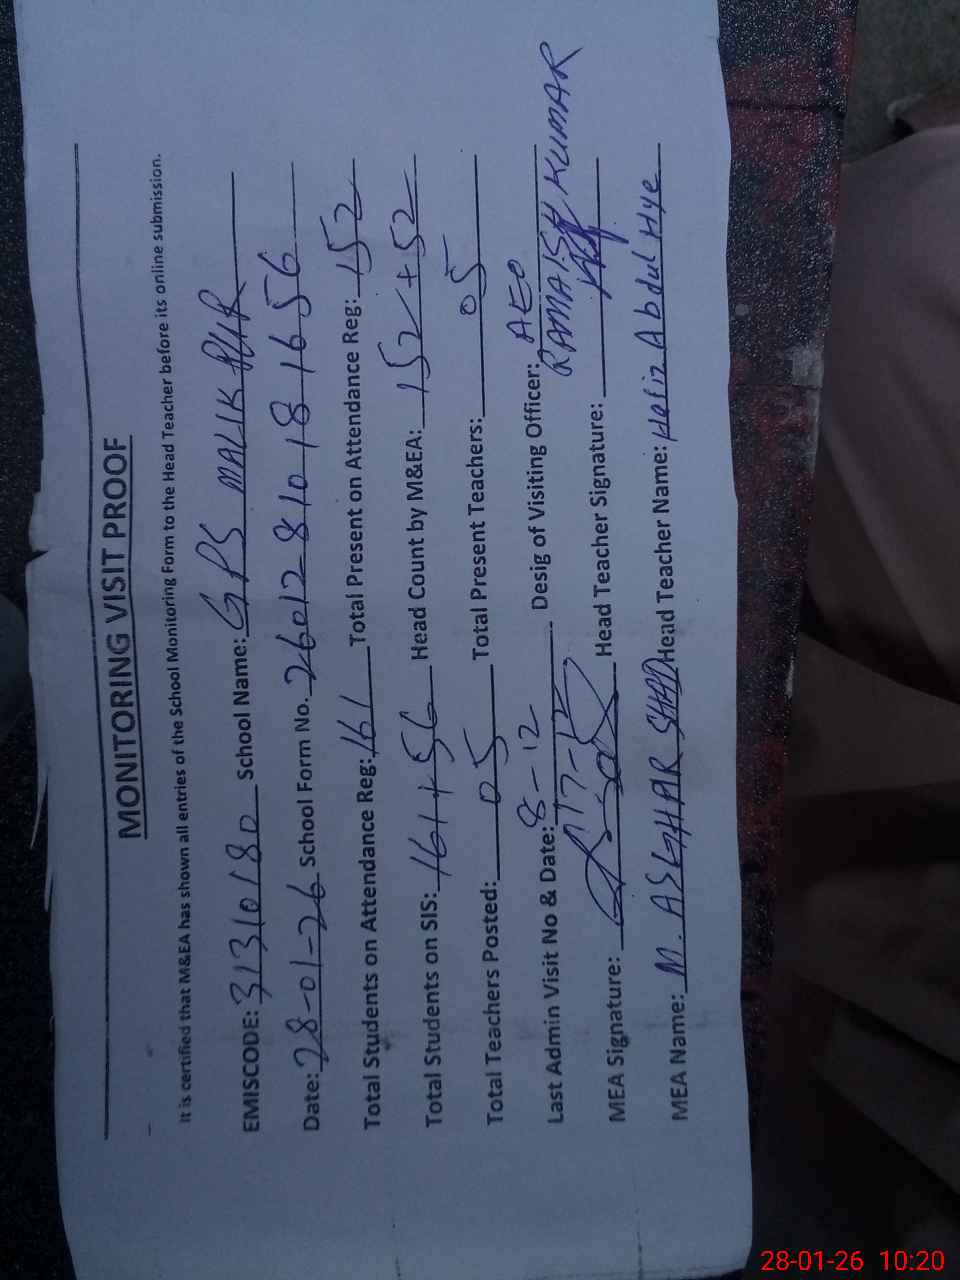 MONITORING VISIT PROOF
It is certified that M&EA has shown all entries of the School Monitoring Form to the Head Teacher before its online submission.
EMISCODE: 31310180 School Name: GPS MALIK PUR
Date: 28-01-26 School Form No. 26012810181656
Total Students on Attendance Reg: 161 Total Present on Attendance Reg: 152
Total Students on SIS: 161+56 Head Count by M&EA: 152+52
Total Teachers Posted: 05 Total Present Teachers: 05
Last Admin Visit No & Date: 8-12 Desig of Visiting Officer: AEO
17-12 RAMAISH KUMAR
MEA Signature: Head Teacher Signature:
MEA Name: M. ASGHAR SHAD Head Teacher Name: Hafiz Abdul Hye
28-01-26 10:20